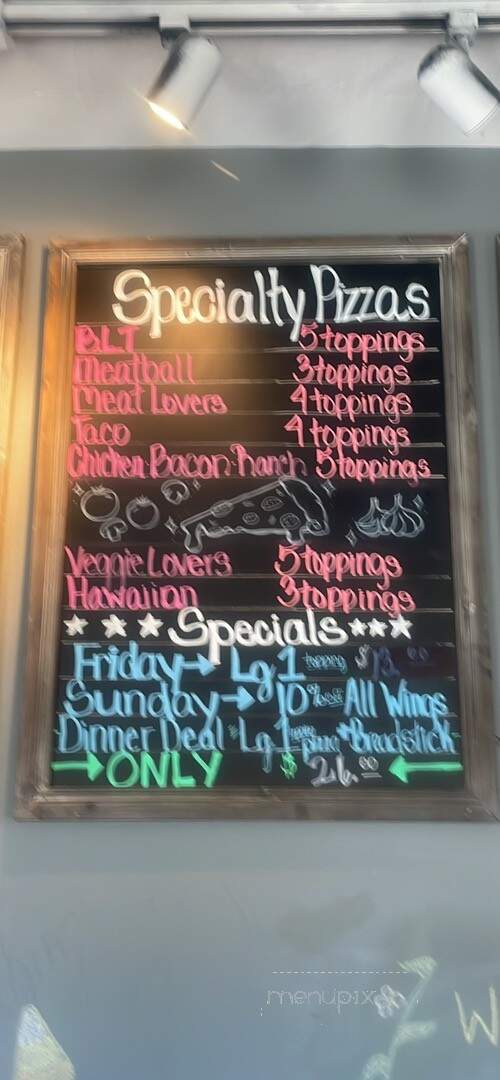 Specialty Pizzas
BLT 5 toppings
Meatball 3 toppings
Meat Lovers 4 toppings
Taco 4 toppings
Chicken Bacon Ranch 5 toppings
Veggie Lovers 5 toppings
Hawaiian 3 toppings
Specials
Friday → Lg 1 topping $13
Sunday → 10% off All Wings
Dinner Deal Lg 1 Bradstick
→ ONLY $26.00 ←
menupix
W